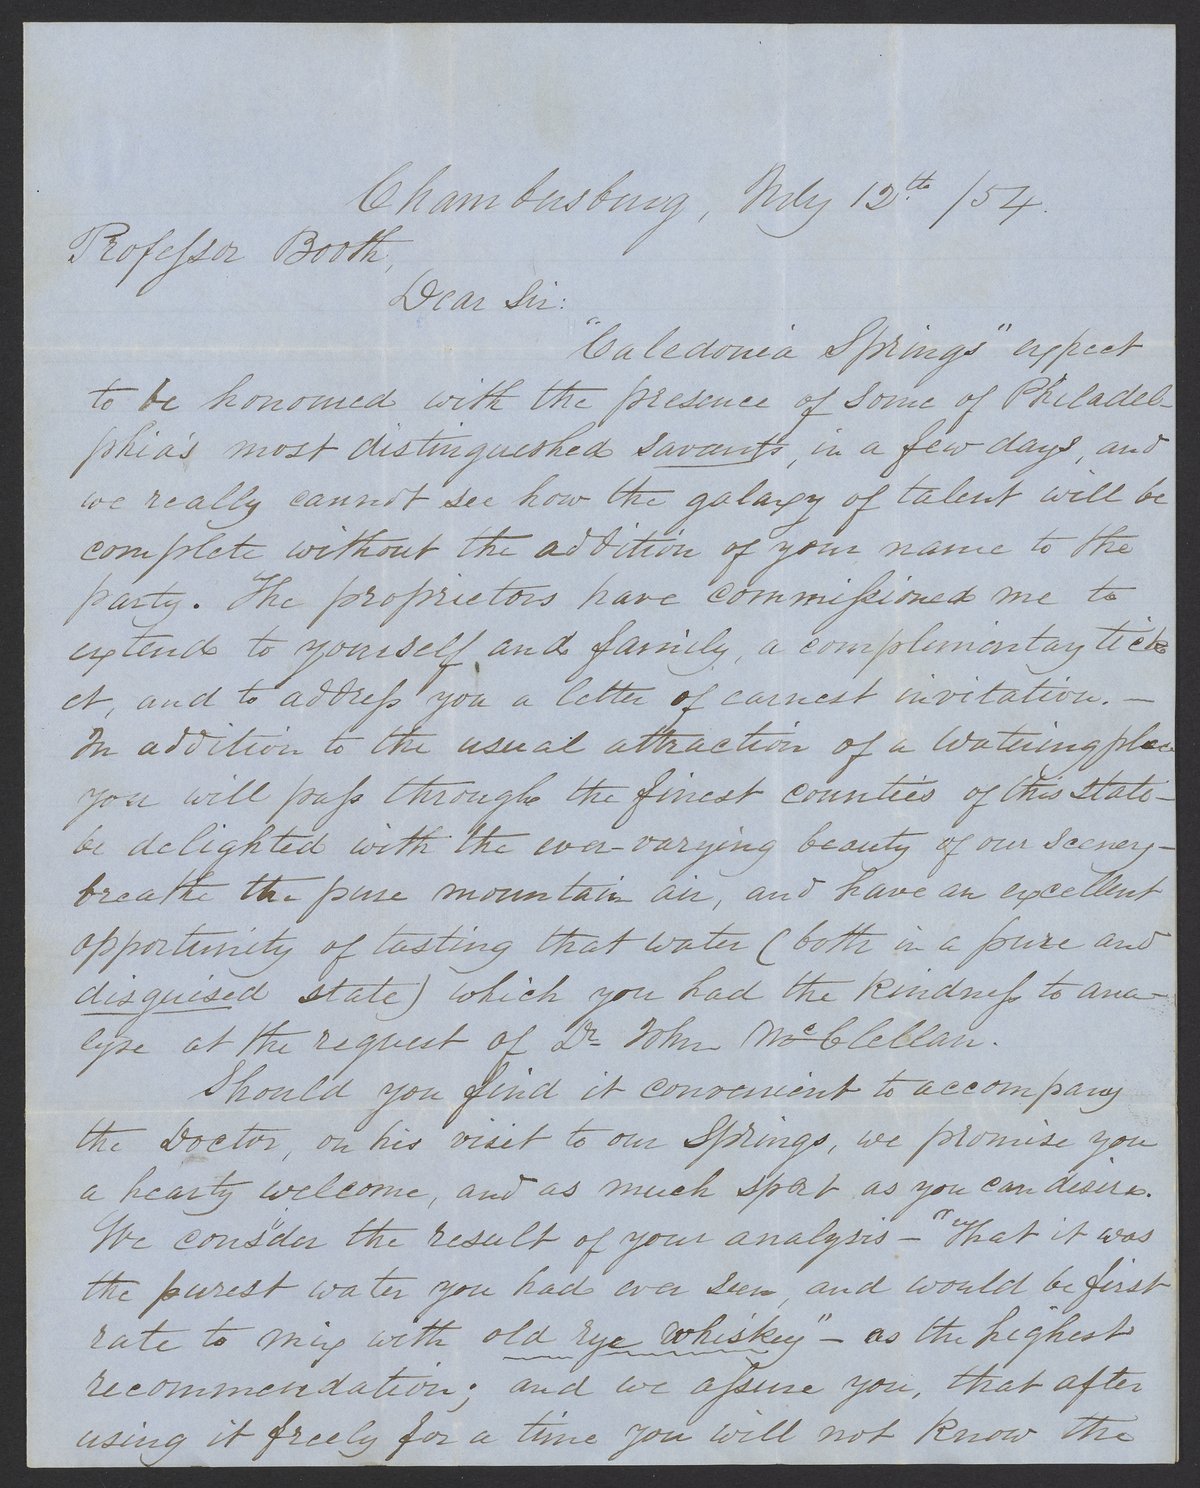 Chambersburg, July 12th /54.
Professor Booth,
Dear Sir:
"Caledonia Springs" expect
to be honored with the presence of some of Philadel-
phia's most distinguished savants, in a few days, and
we really cannot see how the galaxy of talent will be
complete without the addition of your name to the
party. The proprietors have commissioned me to
extend to yourself and family, a complimentary tick
et, and to address you a letter of earnest invitation. —
In addition to the usual attraction of a watering place
you will pass through the finest counties of this state—
be delighted with the ever-varying beauty of our scenery—
breathe the pure mountain air, and have an excellent
opportunity of tasting that water (both in a pure and
disguised state) which you had the kindness to ana-
lyse at the request of Dr John McClellan.
Should you find it convenient to accompany
the Doctor, on his visit to our Springs, we promise you
a hearty welcome, and as much sport as you can desire.
We consider the result of your analysis — "That it was
the purest water you had ever seen, and would be first
rate to mix with old rye whiskey" — as the highest
recommendation; and we assure you, that after
using it freely for a time you will not know the